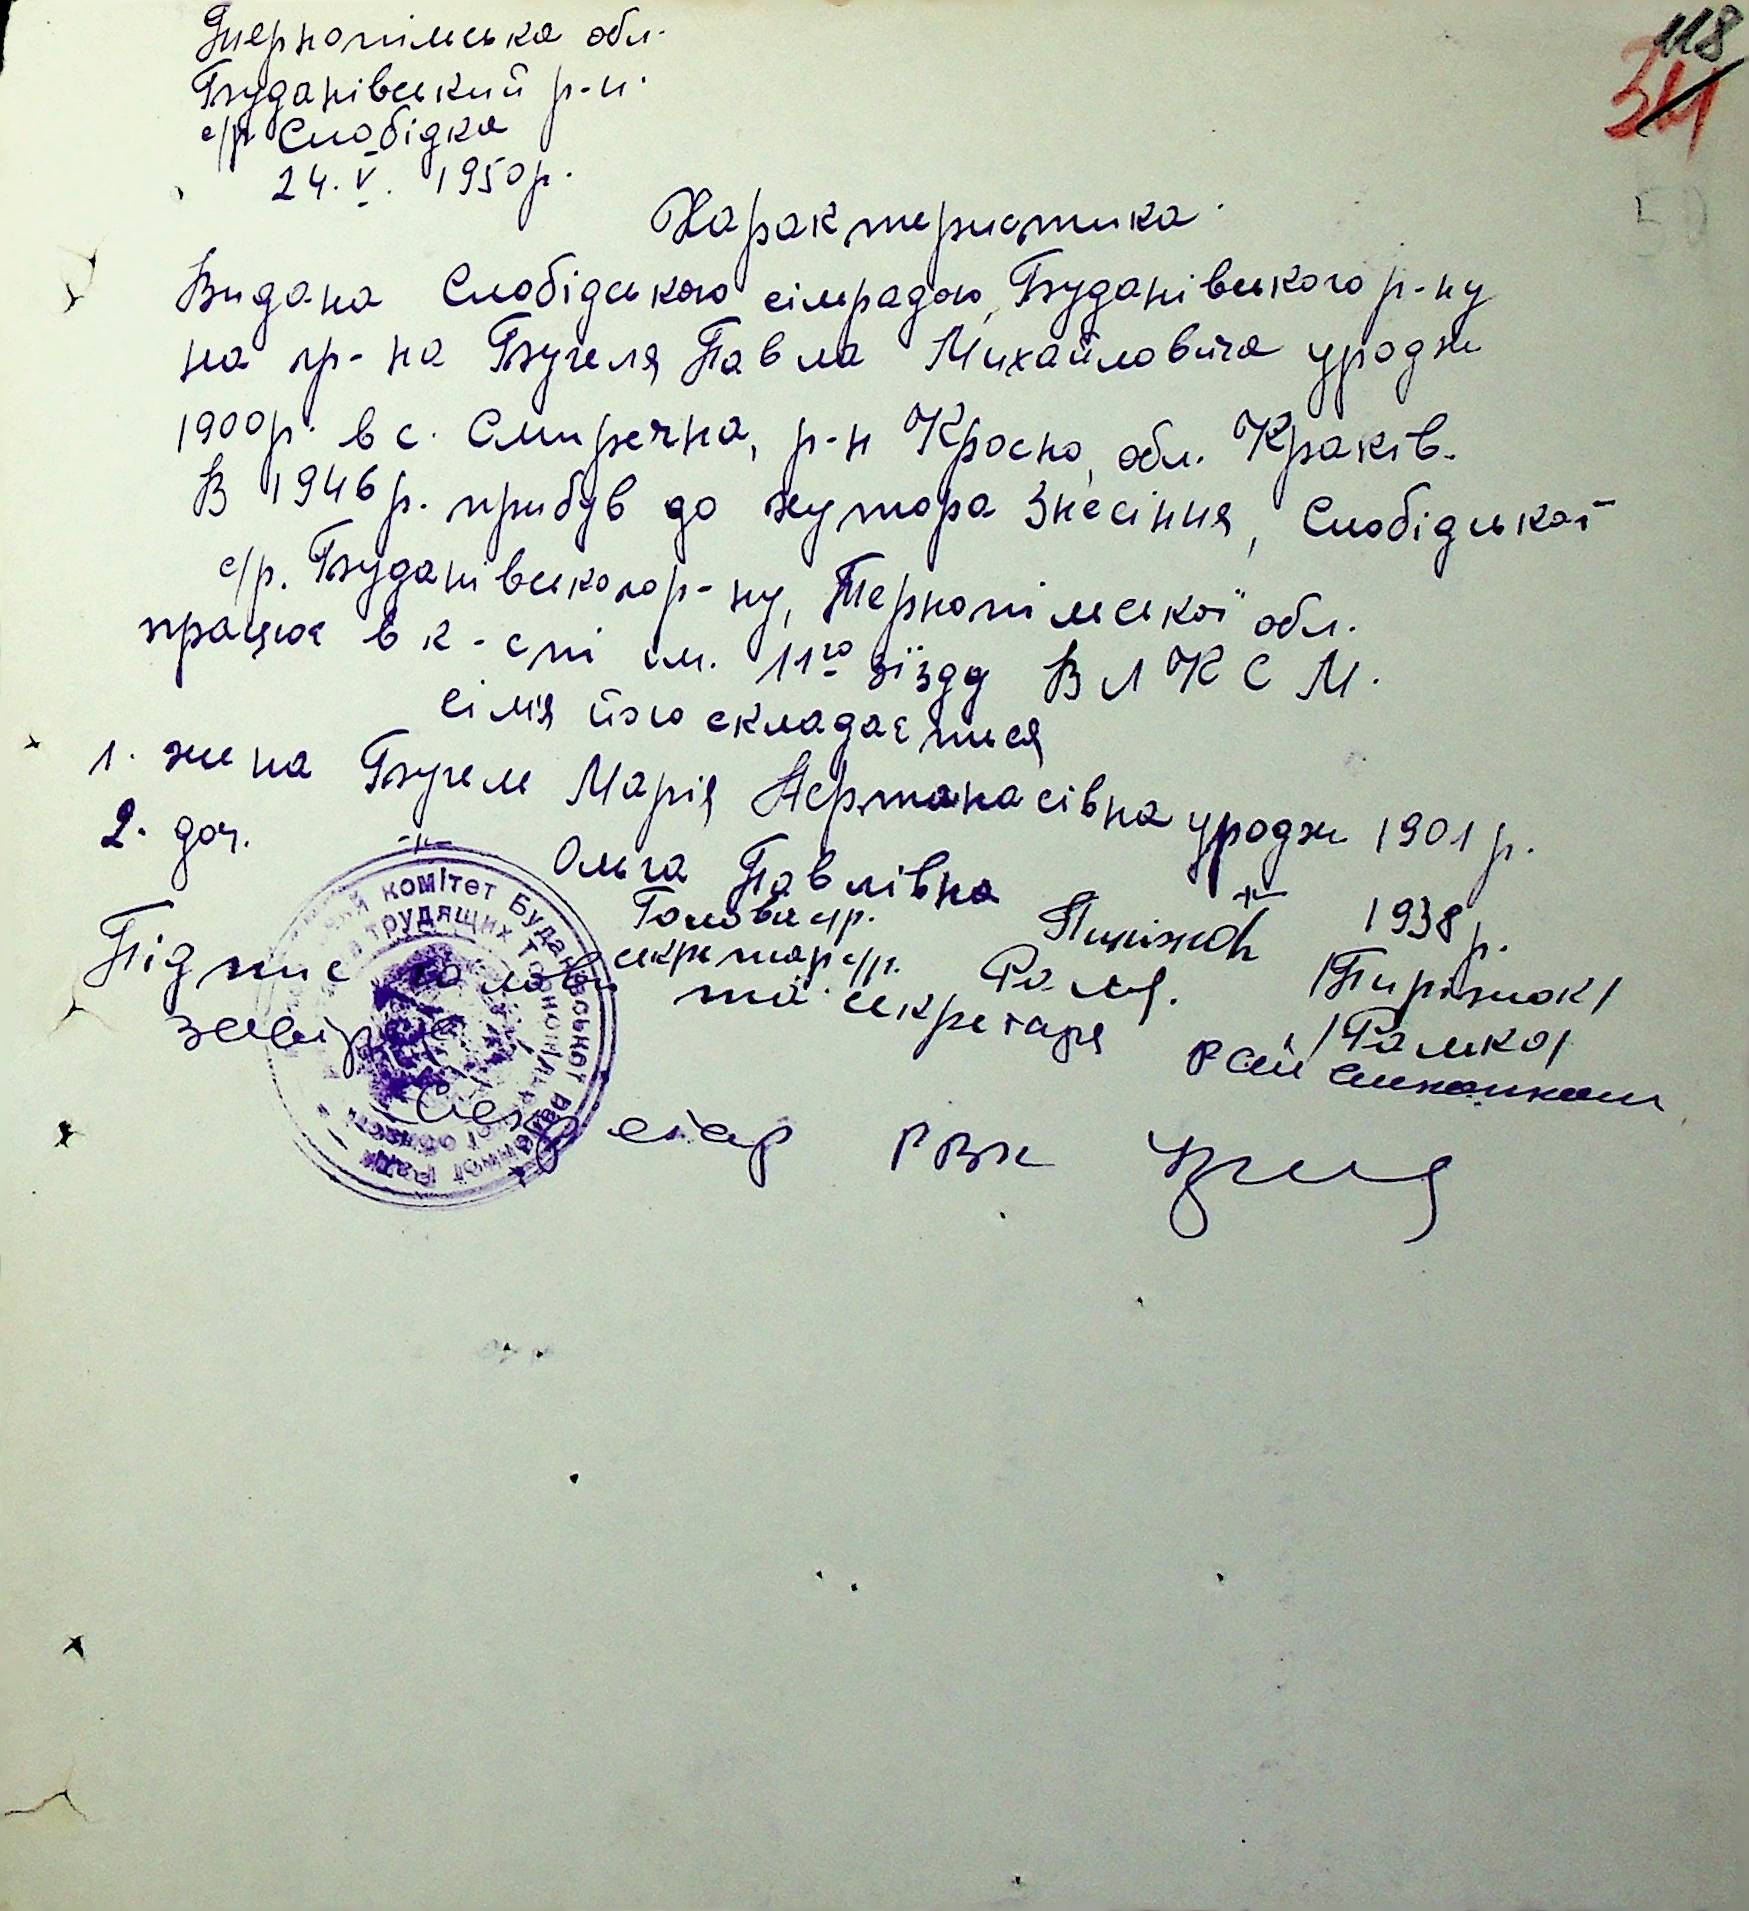 118
34
Тернопільська обл.
Буданівський р-н.
с/р Слобідка
24. V. 1950 р.
Характеристика.
Видана Слобідською сільрадою, Буданівського р-ну
на гр-на Бугеля Павла Михайловича уродж
1900 р. в с. Смиречна, р-н Кросно, обл. Краків.
В 1946 р. прибув до хутора Знесіння, Слобідської
с/р. Буданівського р-ну, Тернопільської обл.
працює в к-спі ім. 11го зїзду ВЛКСМ.
Сімя його складається
1. жена Бугель Марія уродж 1901 р.
2. доч. -//- Ольга Павлівна -//- 1938 р.
Голова с/р. /Пиріжок/
секретар с/р. /Ромко/
Підпис голови та секретаря
завіряє
Секретар РВК
комітет Буданівської районної ради
трудящих